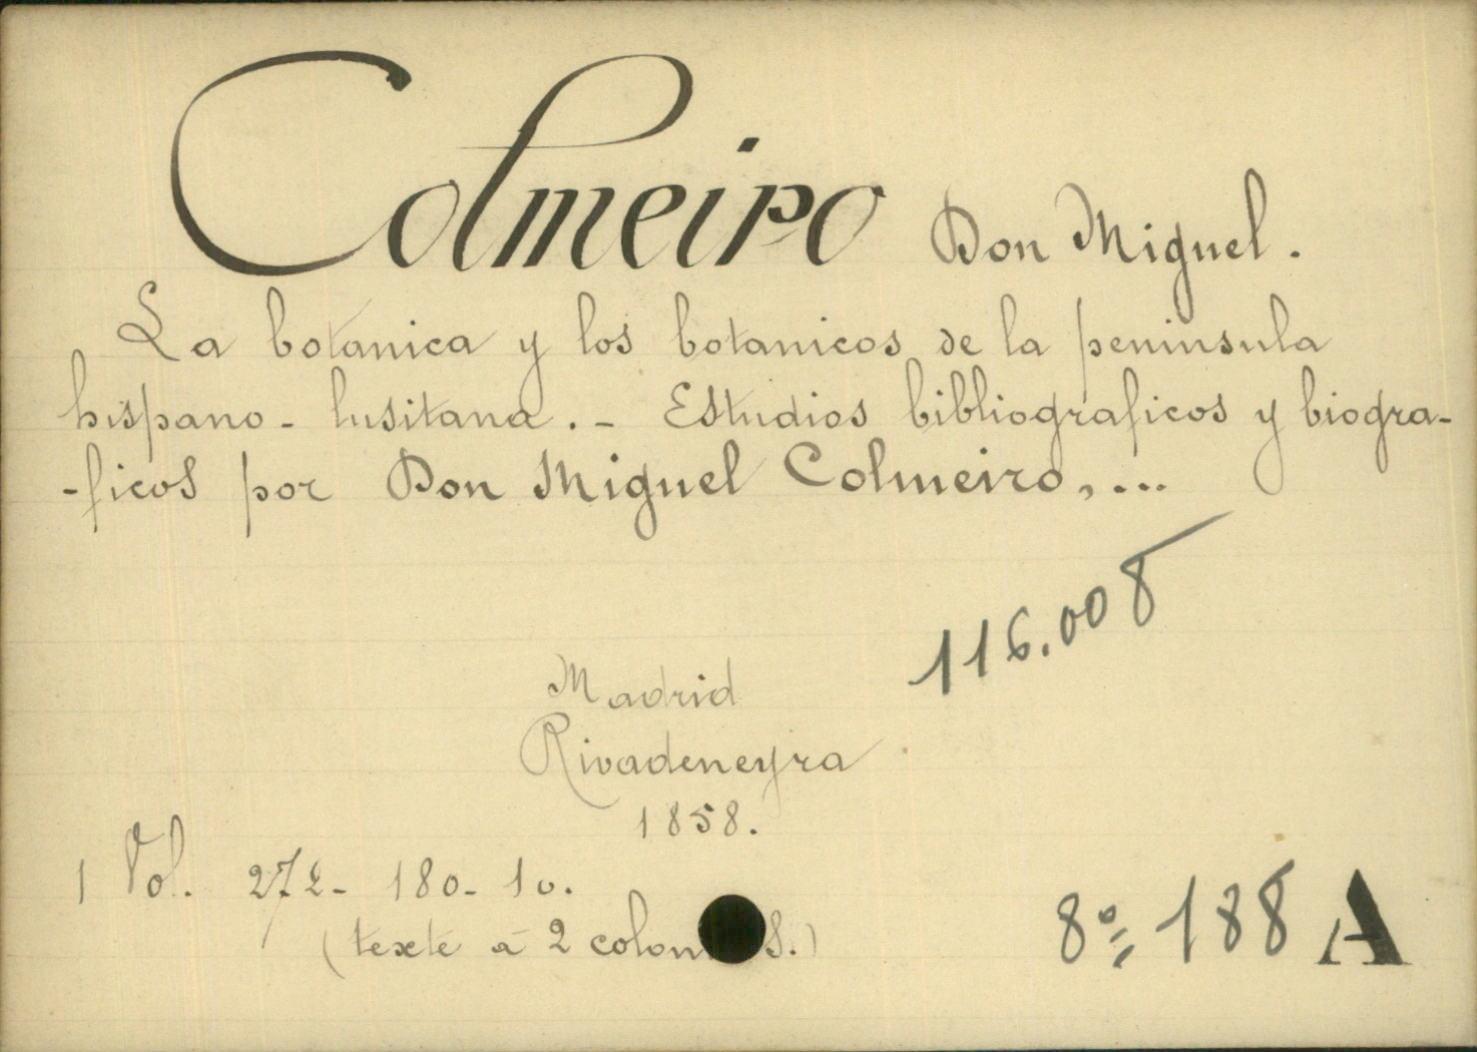 Colmeiro Don Miguel.
La botanica y los botanicos de la peninsula
hispano - lusitana. - Estudios bibliograficos y biogra-
-ficos por Don Miguel Colmeiro, ...
116.008
Madrid
Rivadeneyra
1858.
1 Vol. 272 - 180 - 10.
(texte à 2 colon s.)
8º 188 A